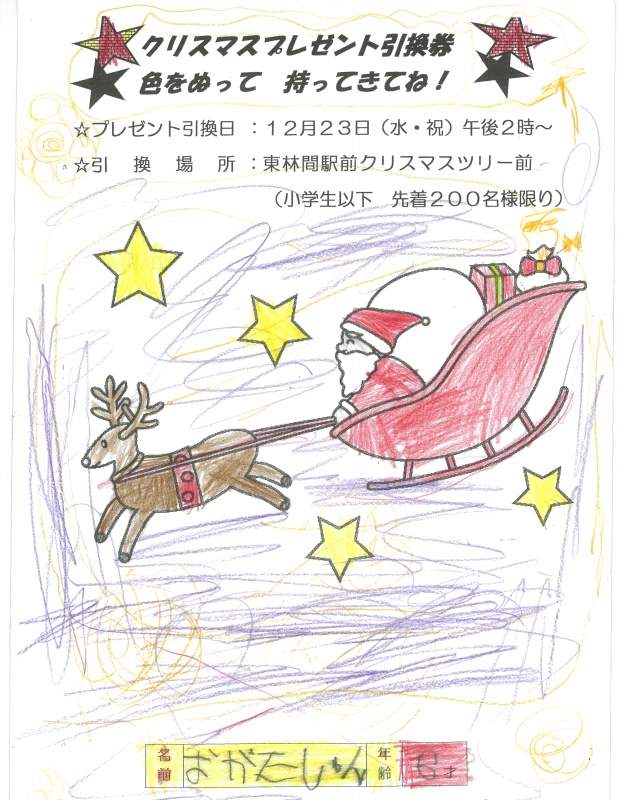 クリスマスプレゼント引換券
色をぬって　持ってきてね！
☆プレゼント引換日　：１２月２３日（水・祝）午後２時～
☆引　換　場　所　：東林間駅前クリスマスツリー前
（小学生以下　先着２００名様限り）
名前 おがたしゅん 年齢 6才